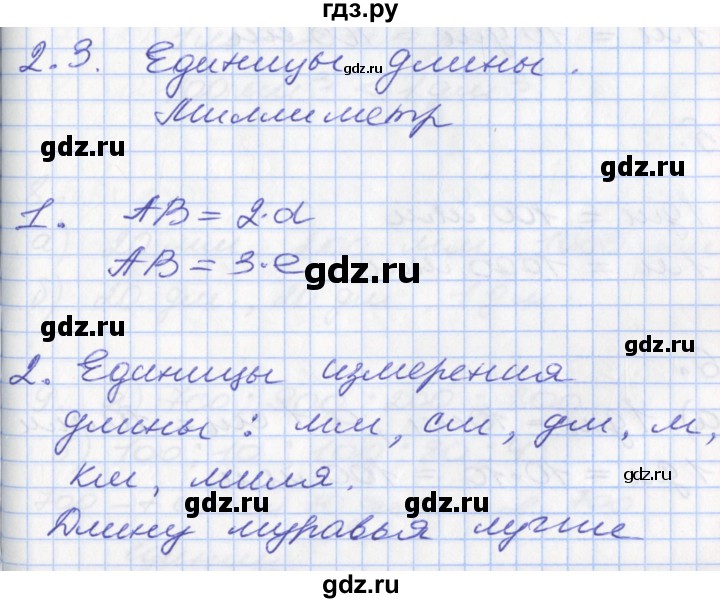 гдз.ру
2.3. Единицы длины.
gdz.ru
Миллиметр
gdz.ru
gdz.ru
1. AB = 2·d
AB = 3·e
gdz.ru
gdz.ru
2. Единицы измерения
длины: мм, см, дм, м,
км, миля.
gdz.ru
gdz.ru
gdz.ru
Длину муравья лучше
gdz.ru